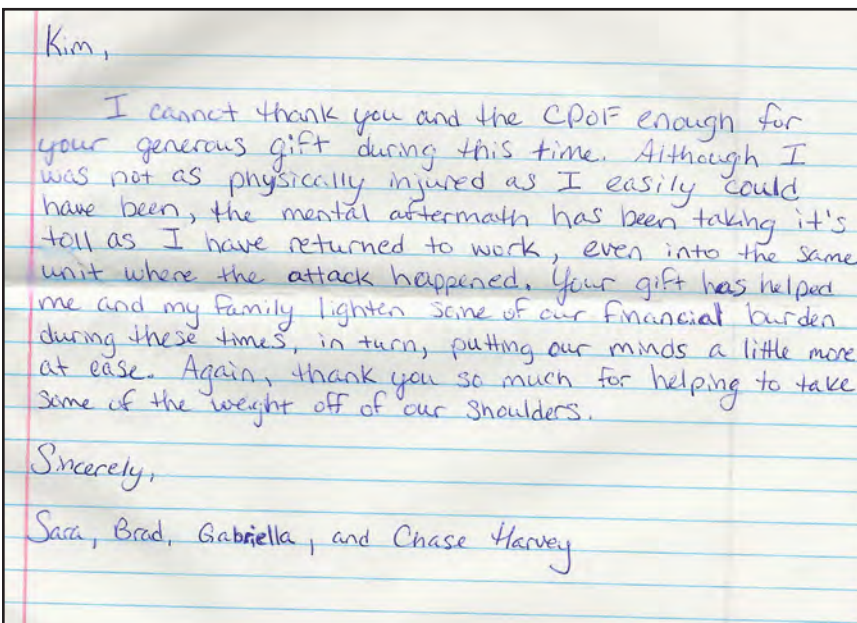 Kim,
I cannot thank you and the CPOF enough for
your generous gift during this time. Although I
was not as physically injured as I easily could
have been, the mental aftermath has been taking it's
toll as I have returned to work, even into the same
unit where the attack happened. Your gift has helped
me and my family lighten some of our financial burden
during these times, in turn, putting our minds a little more
at ease. Again, thank you so much for helping to take
some of the weight off of our shoulders.
Sincerely,
Sara, Brad, Gabriella, and Chase Harvey